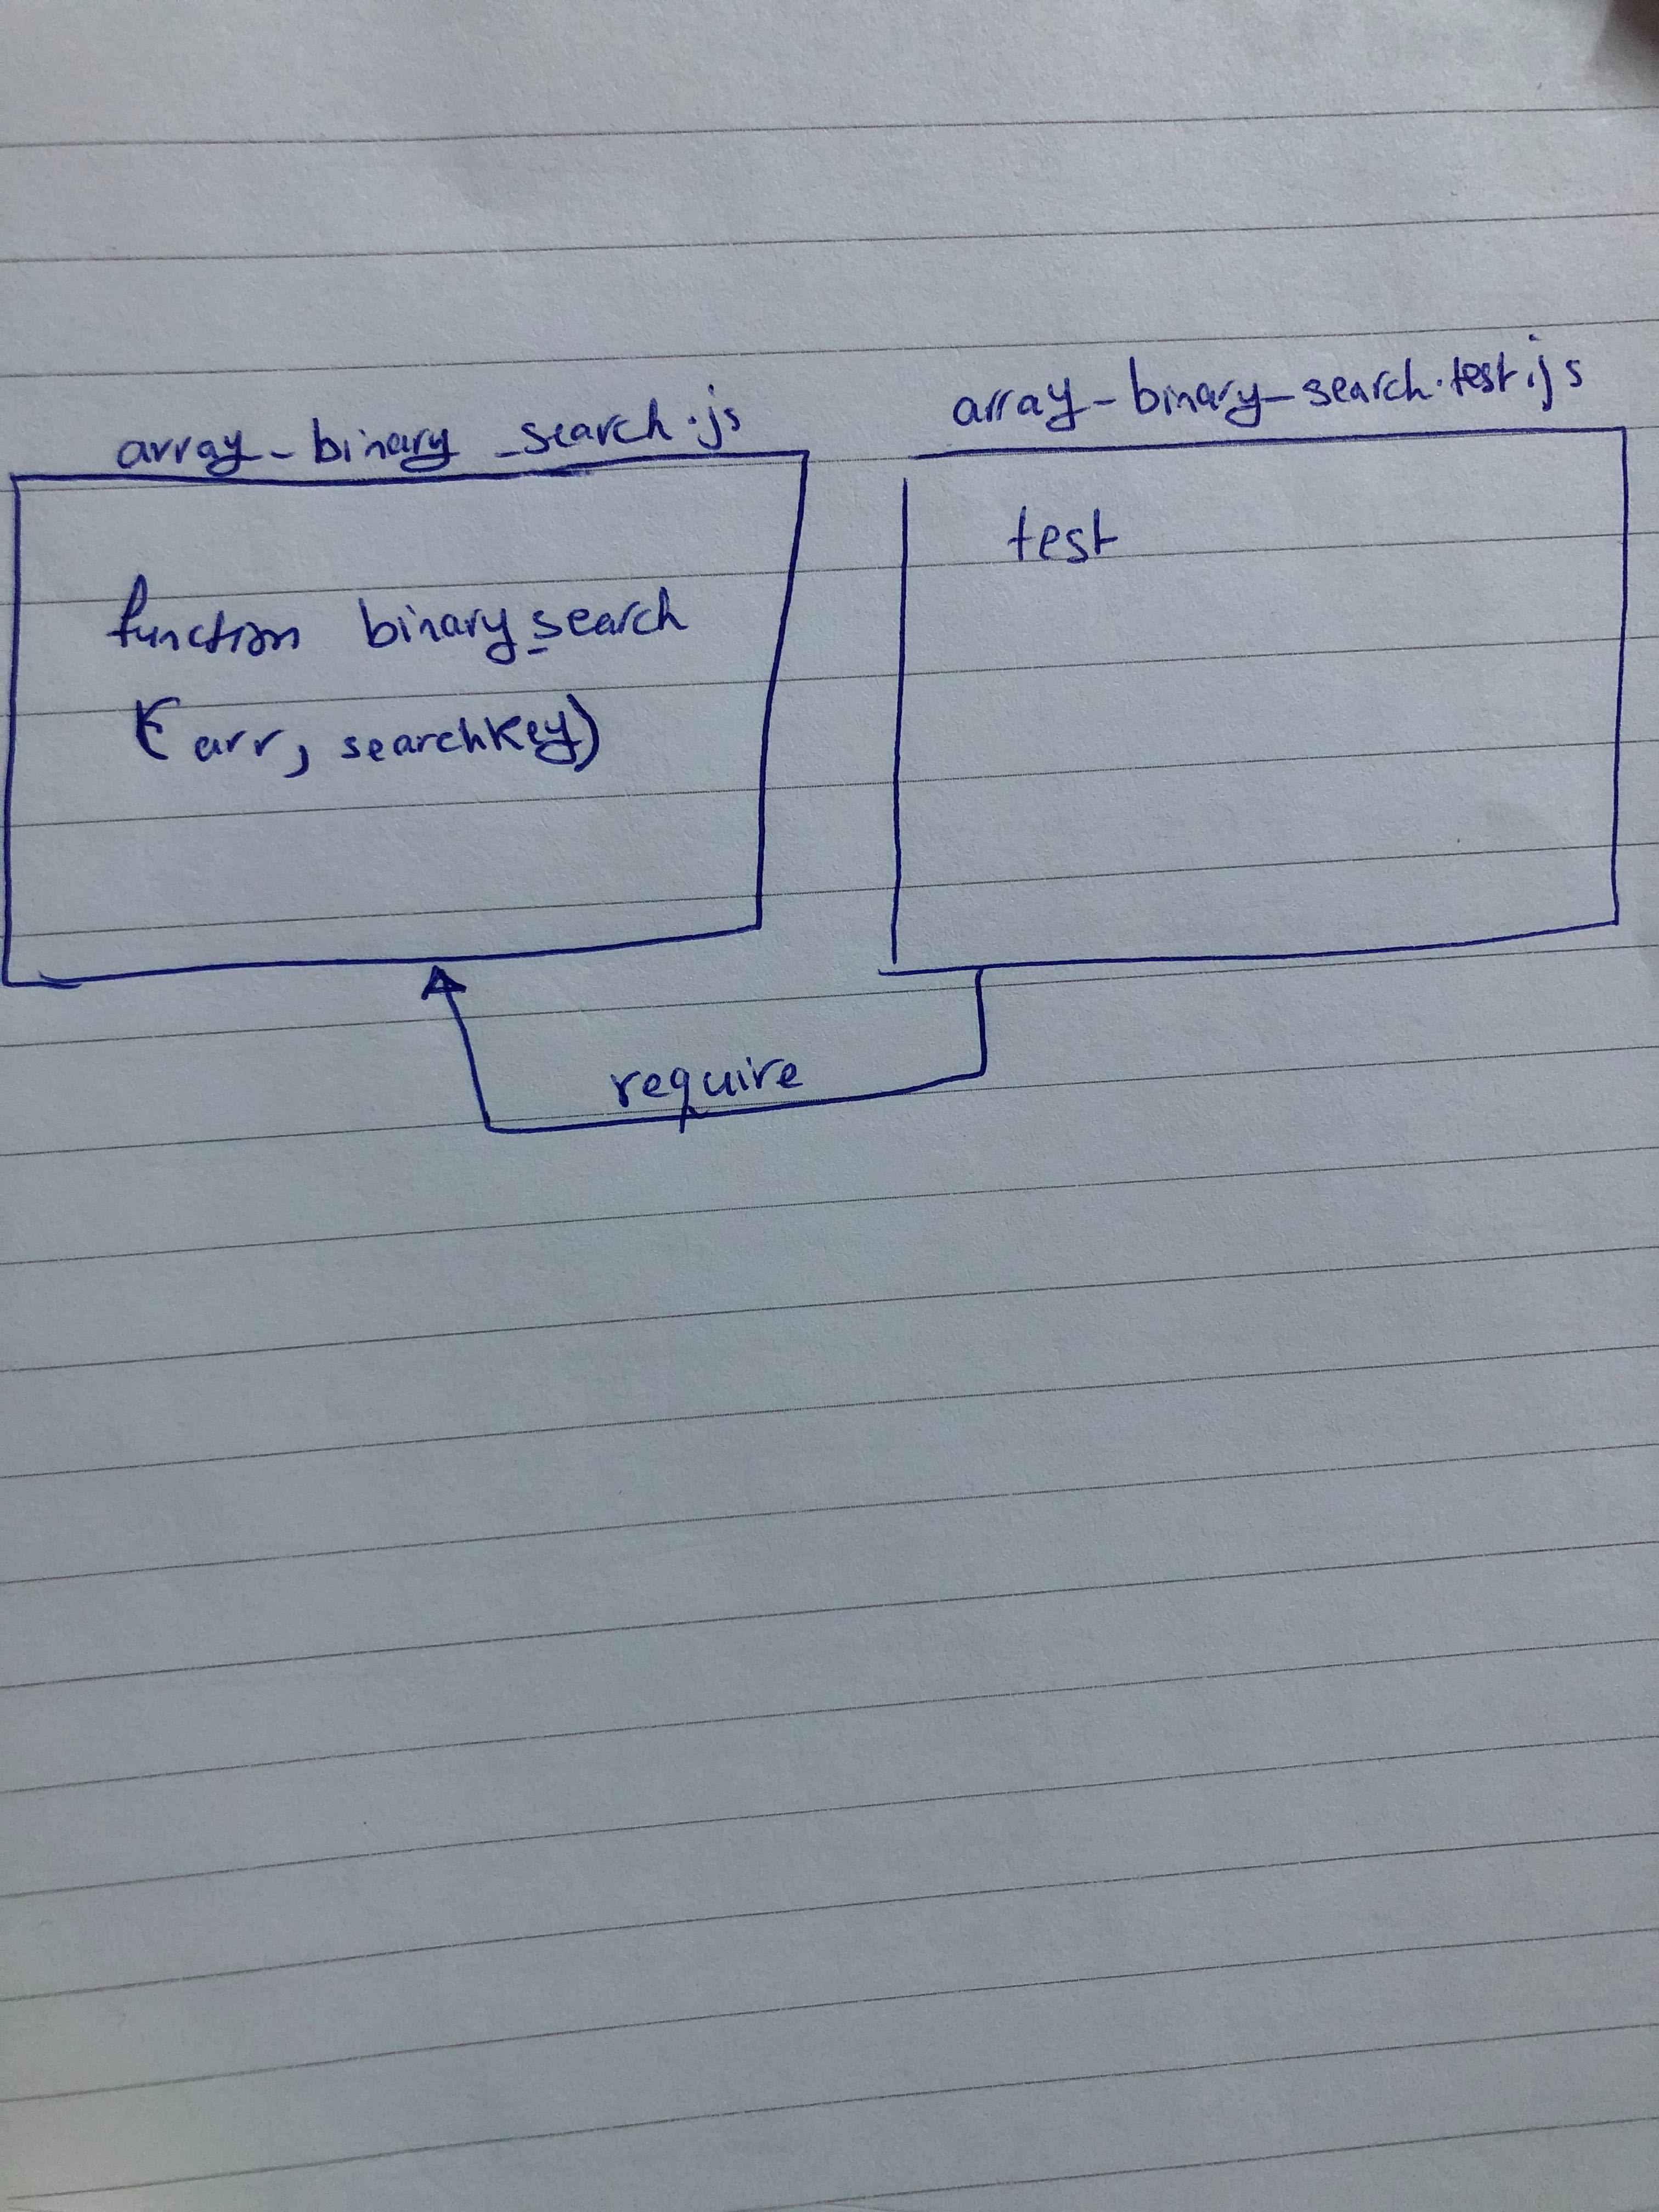 array_binary_search.js
function binary_search
(arr, searchKey)
array-binary-search.test.js
test
require